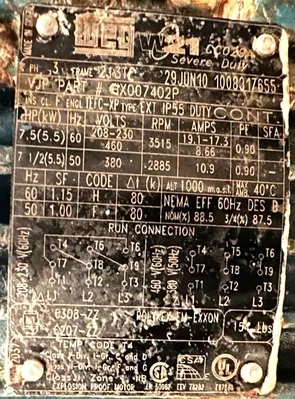 WEG W21 CC029A
Severe Duty
PH 3 FRAME 213TC 29JUN10 1008317655
VJP PART # EX007402P
INS CL F ENCL TEFC-XP TYPE EXT IP55 DUTY CONT.
HP(kW) Hz VOLTS RPM AMPS PF SFA
7.5(5.5) 60 208-230 -460 3515 19.1-17.3 8.66 0.90
7 1/2(5.5) 50 380 2885 10.9 0.90
Hz SF CODE Δt (k) ALT 1000 m.a.s.l. MAX 40°C
60 1.15 H 80 NEMA EFF 60Hz DES B
50 1.00 F 80 NOM(%) 88.5 3/4(%) 87.5
RUN CONNECTION
208-230 V(60Hz) T4 T6 T5 T7 T8 T9 T1 T2 T3 L1 L2 L3
460 V(60Hz) T4 T6 T5 T7 T9 T8 T1 T2 T3 L1 L2 L3
6308-ZZ POLYREX EM-EXXON
6207-ZZ 154 Lbs
TEMP CODE T4
EXPLOSION PROOF MOTOR